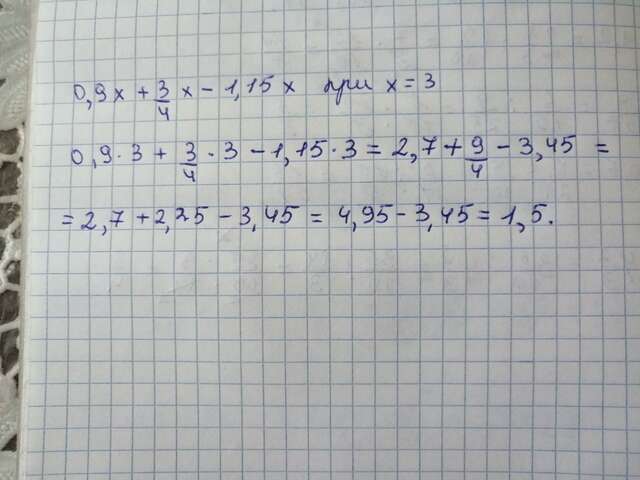 0,9x + 3/4 x - 1,15x при x = 3
0,9·3 + 3/4 ·3 - 1,15·3 = 2,7 + 9/4 - 3,45 =
= 2,7 + 2,25 - 3,45 = 4,95 - 3,45 = 1,5.